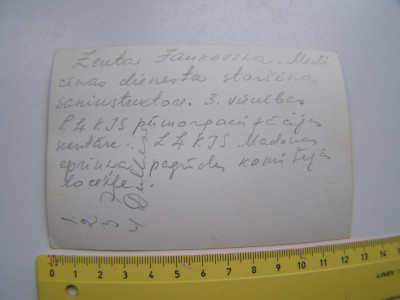 Zenta Jankovska. Medi
cīnas dienesta staršina
saninstruktore. 3. vienības
LĻKJS pirmorganizācijas
LĻKJS Madonas
apriņķa pagrīdes komitejas
locekle.
0 1 2 3 4 5 6 7 8 9 10 11 12 13 14 15